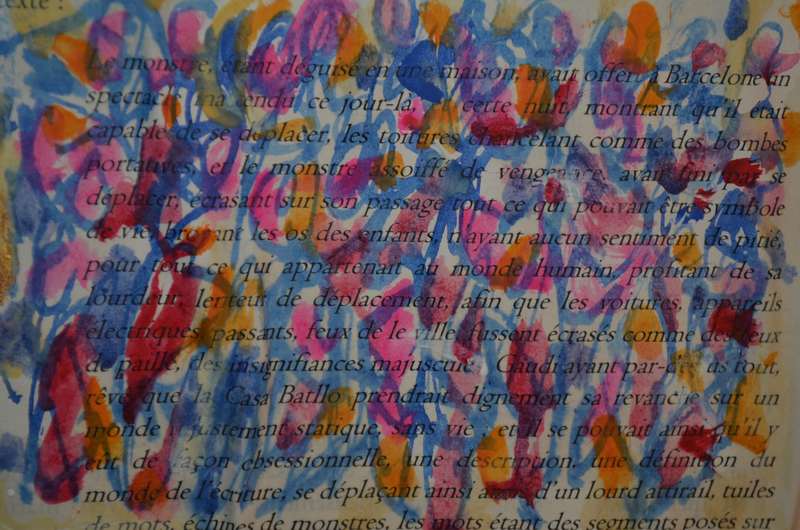 texte :
Le monstre, étant déguisé en une maison, avait offert à Barcelone un
spectacle ce jour-là, et cette nuit, montrant qu'il était
capable de se déplacer, les toitures chancelant comme des bombes
portatives, et le monstre assoiffé de vengeance, avait fini par se
déplacer, écrasant sur son passage tout ce qui pouvait être symbole
de vie, broyant les os des enfants, n'ayant aucun sentiment de pitié,
pour tout ce qui appartenait au monde humain, profitant de sa
lourdeur, lenteur de déplacement, afin que les voitures, appareils
électriques passants, feux de la ville, fussent écrasés comme des feux
de paille, des insignifiances majuscule. Gaudi avant par-dessus tout,
rêve que la Casa Batllo prendrait dignement sa revanche sur un
monde injustement statique, sans vie et il se pouvait ainsi qu'il y
eut de façon obsessionnelle, une description, une définition du
monde de l'écriture, se déplaçant ainsi d'un lourd attirail, tuiles
de mots, échines de monstres, les mots étant des segments posés sur